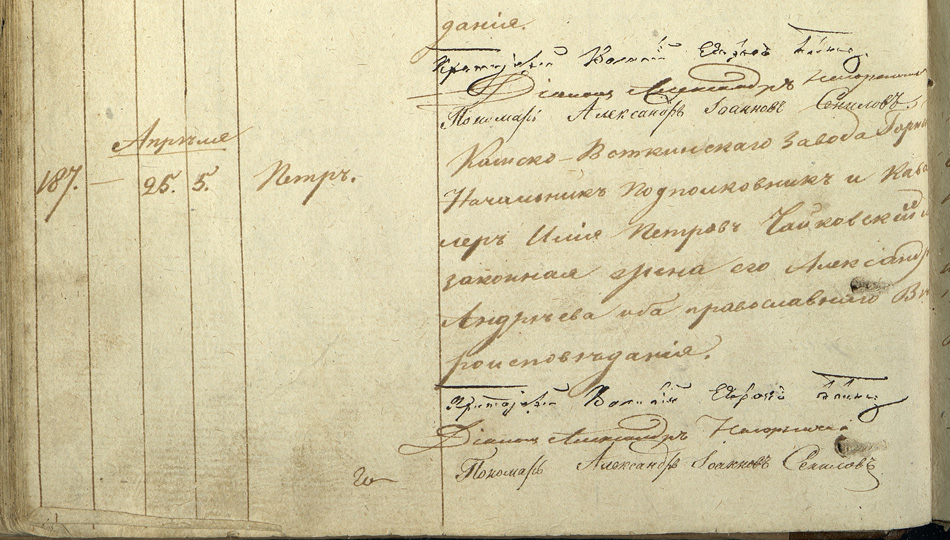 данія.
Протоіерей Василій
Діаконъ Александръ
Пономарь Александръ Іоанновъ Сениловъ
Апрѣля
187. — 25. 5. Петръ.
Камско-Воткинскаго завода Горн
Начальникъ Подполковникъ и Кава
леръ Илія Петровъ Чайковскій и
законная жена его Александр
Андрѣева оба православнаго Вѣ
роисповѣданія.
Протоіерей Василій
Діаконъ Александръ
Пономарь Александръ Іоанновъ Сениловъ